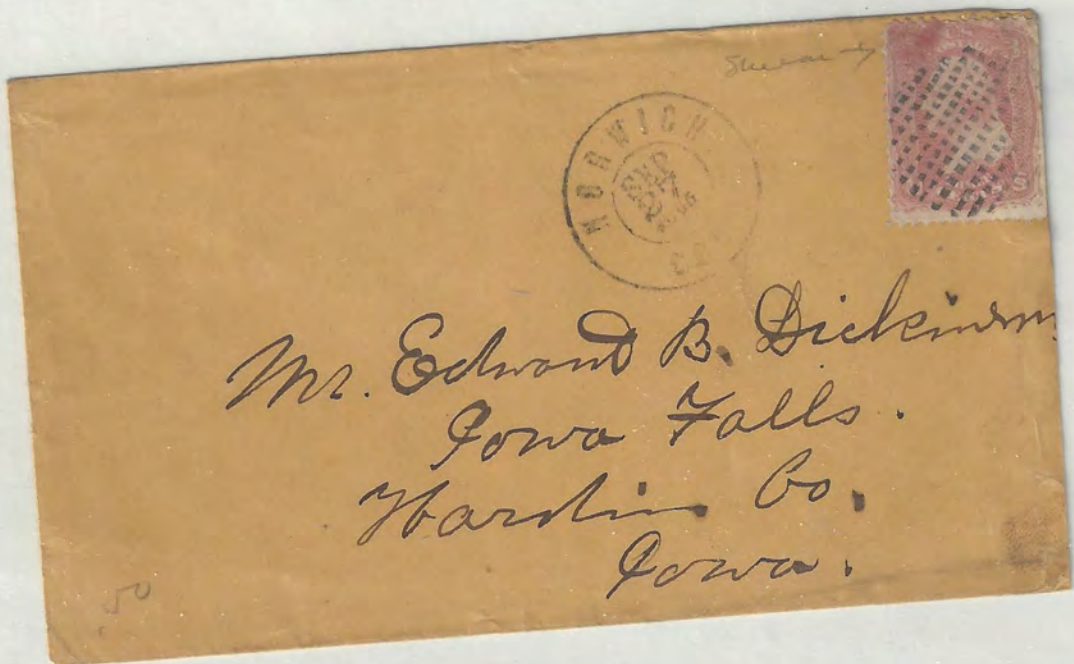 NORWICH
SEP
Mr. Edward B. Dickinson
Iowa Falls.
Hardin Co.
Iowa.
50